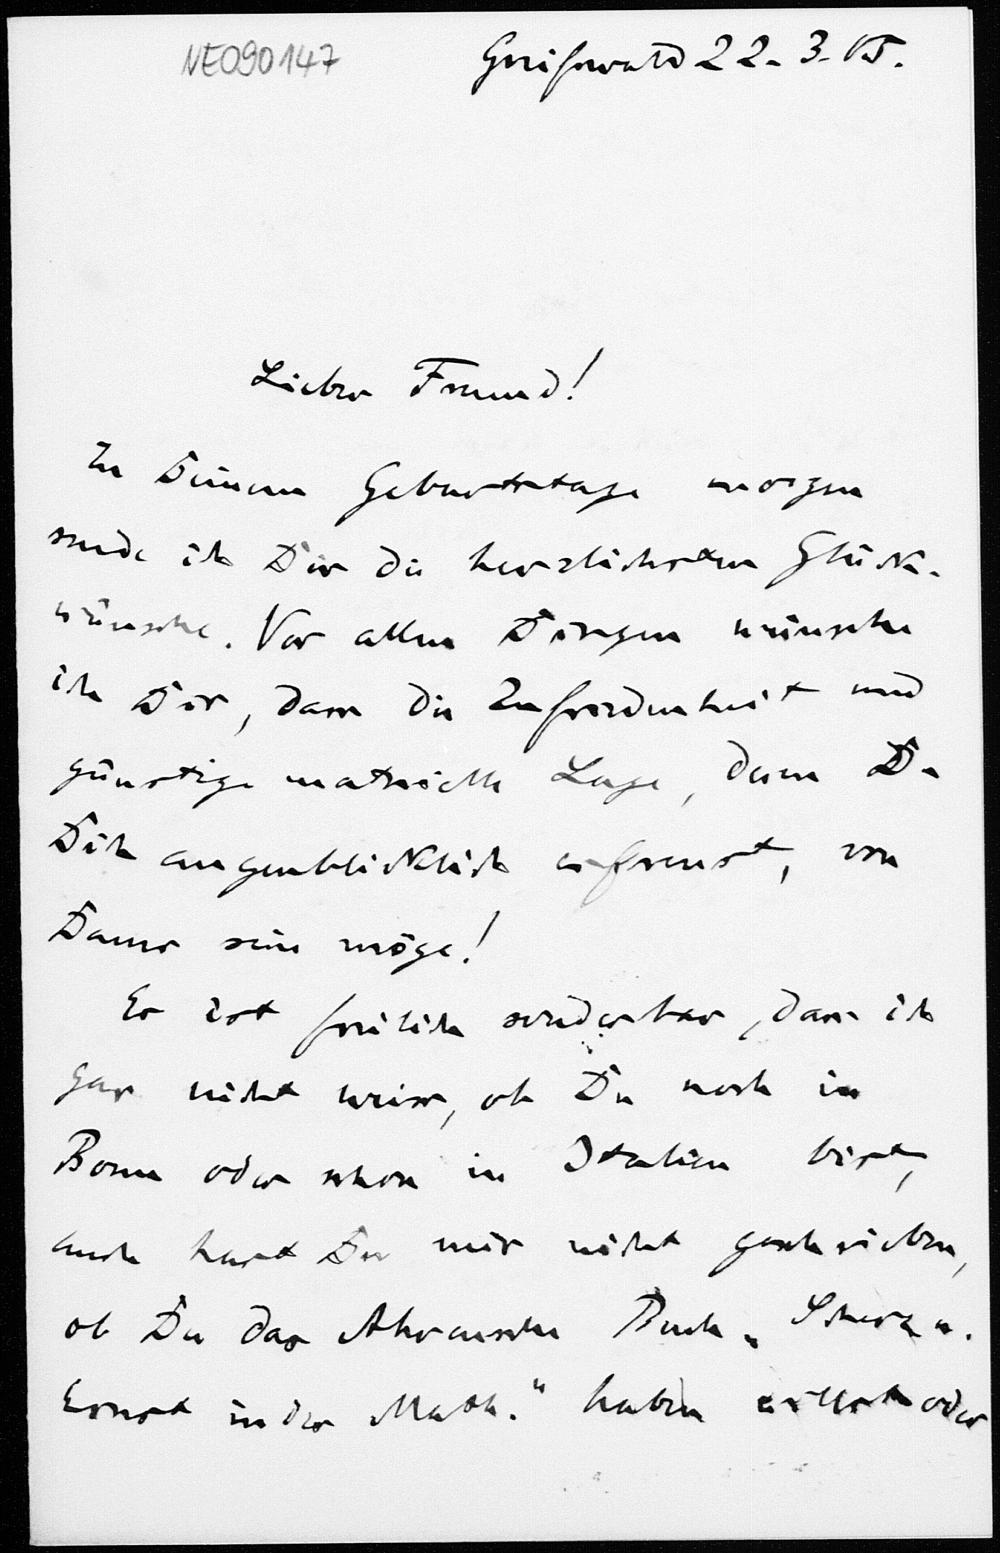 NE090147
Greifswald 22. 3. 05.
Lieber Freund!
Zu Deinem Geburtstage morgen
sende ich Dir die herzlichsten Glück-
wünsche. Vor allen Dingen wünsche
ich Dir, dass die Zufriedenheit und
günstige materielle Lage, deren Du
Dich augenblicklich erfreust, von
Dauer sein möge!
Es ist freilich sonderbar, dass ich
gar nicht weiss, ob Du noch in
Bonn oder schon in Italien bist,
auch hast Du mir nicht geschrieben,
ob Du das Ahrenssche Buch „Scherz u.
Ernst in der Math.“ haben willst oder